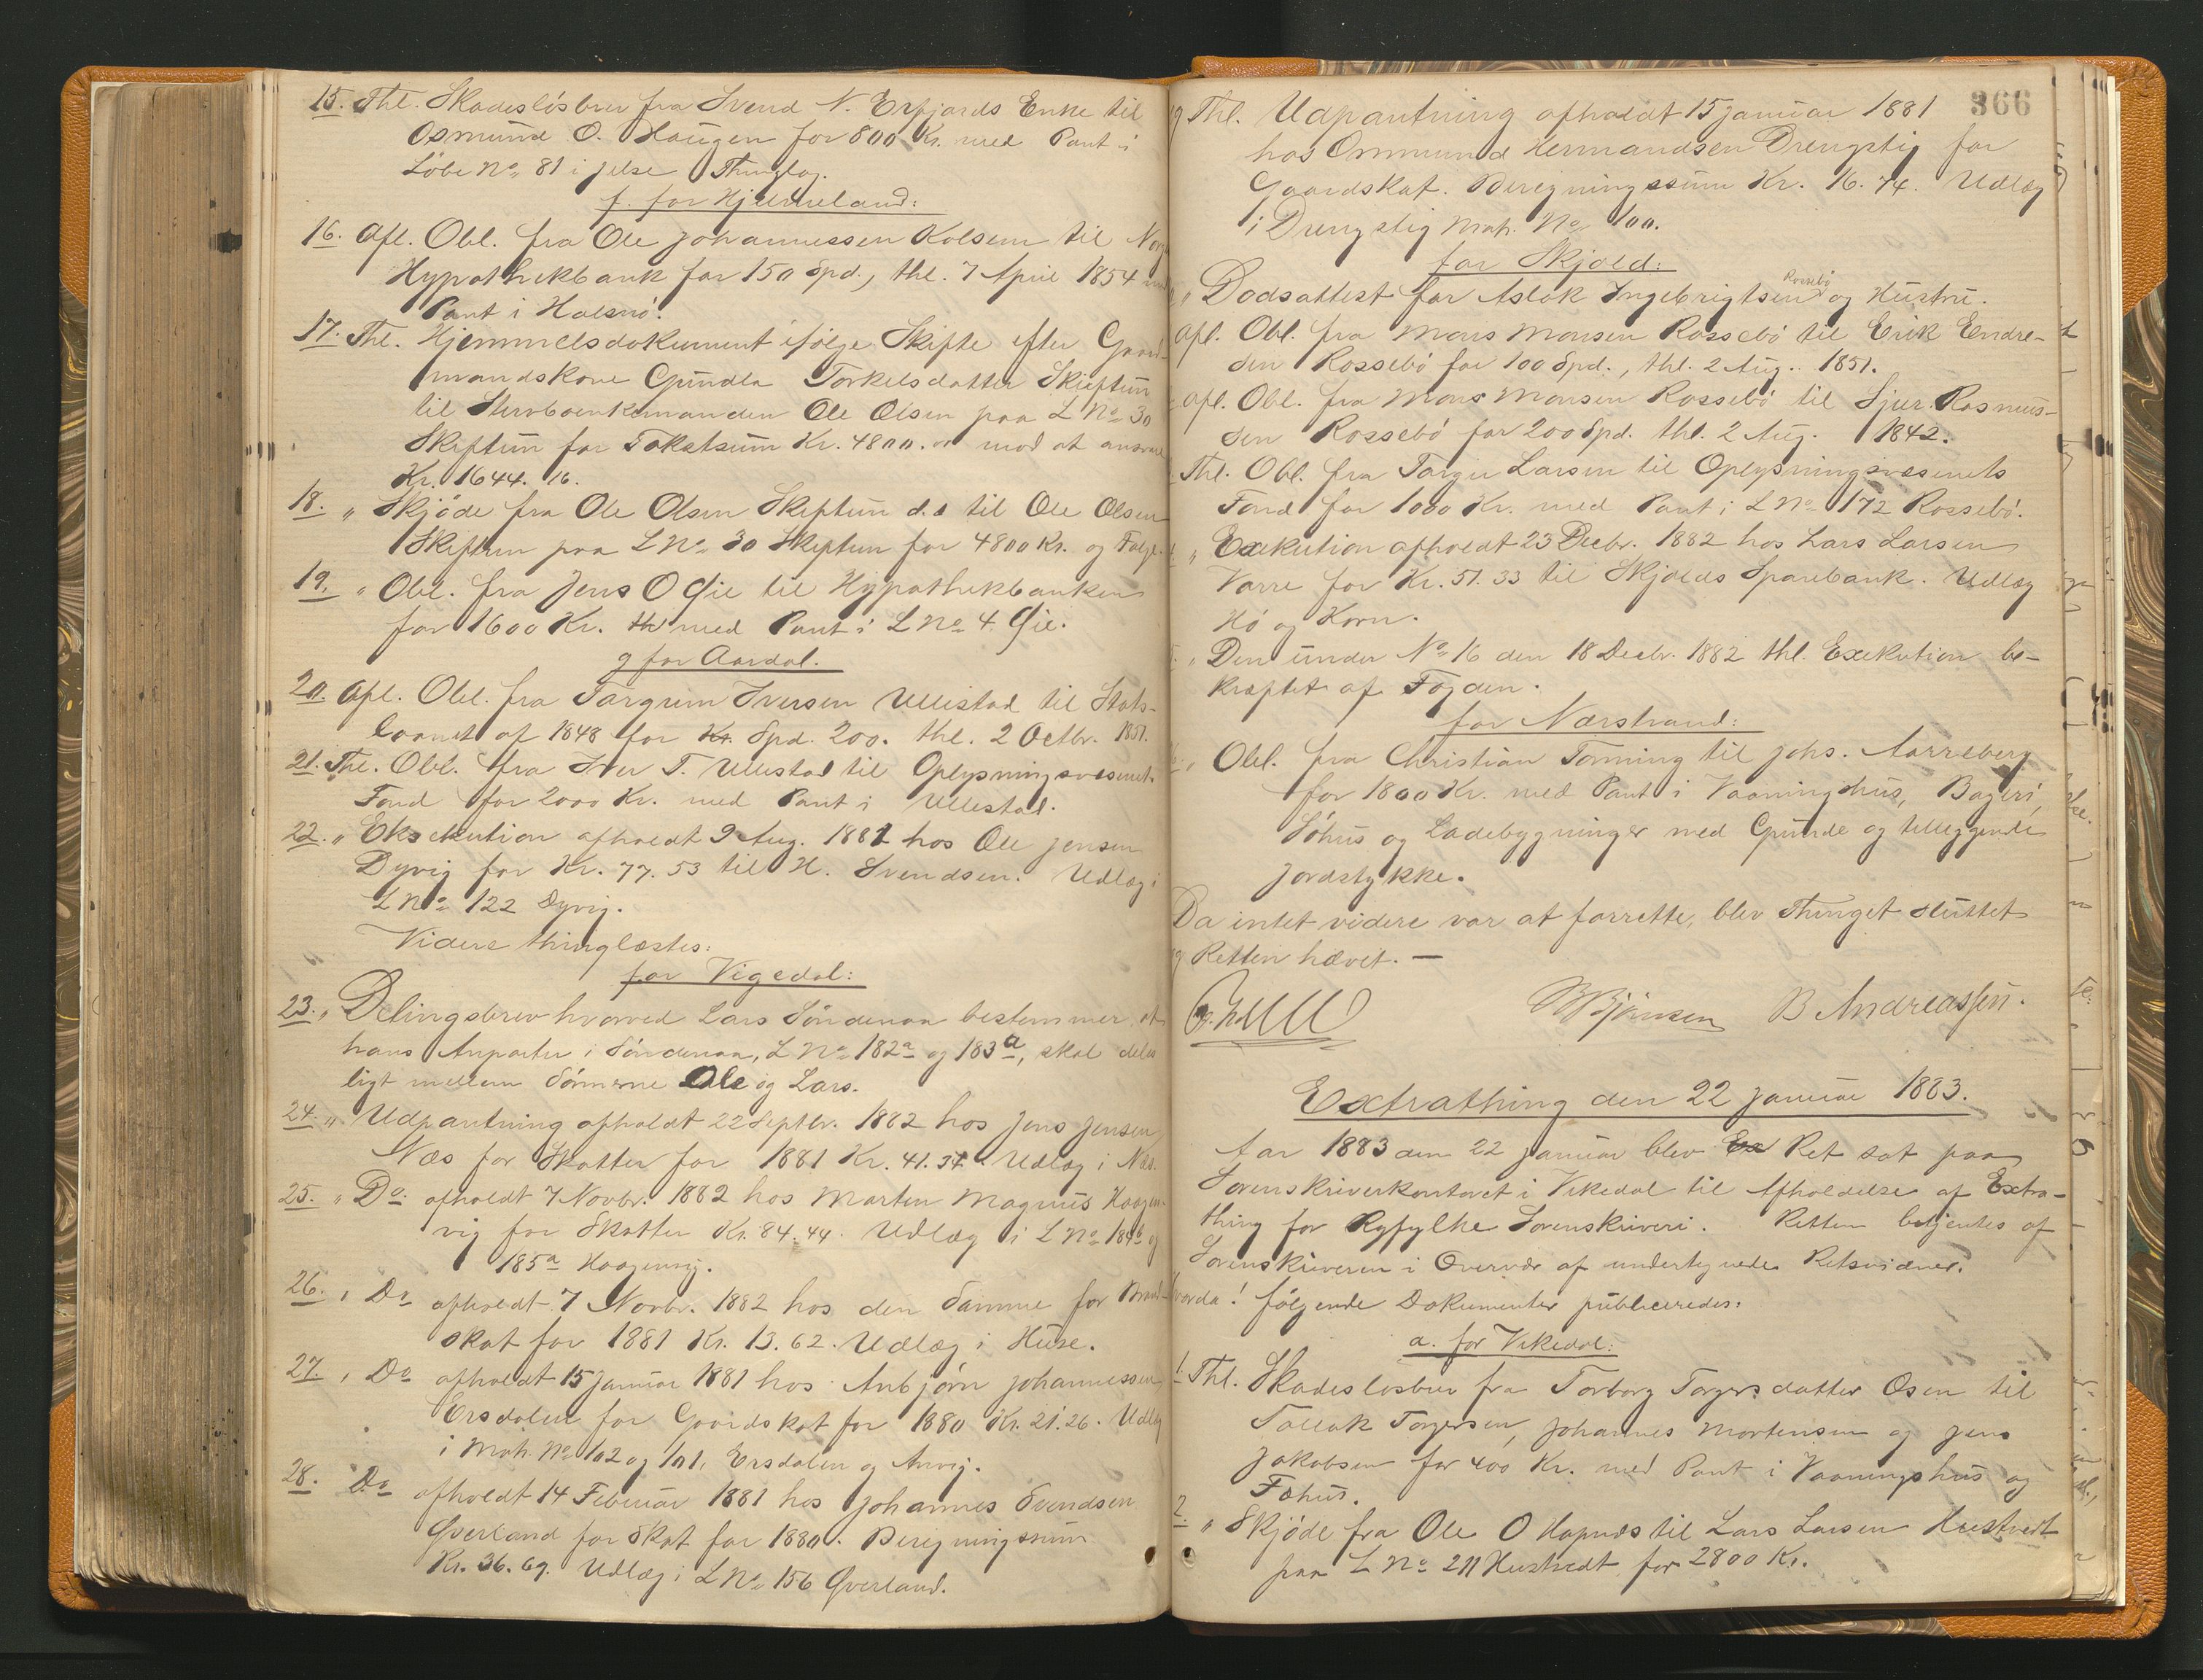 15. Thl. Skadesløsbrev fra Svend N. Erfjords Enke til
Osmund O. Haugen for 800 Kr. med Pant i
Løbe No. 81 i Jelse Thinglag.
f. for Hjelmeland:
16. Afl. Obl. fra Ole Johannessen Kolsem til
Hypothekbank for 150 Spd., thl. 7 April 1854
Pant i Halsnø.
17. Thl. Hjemmelsdokument ifølge Skifte efter Gaard-
mandskone Gundla Torkelsdatter Skiftun
til Stervboenkemanden Ole Olsen paa L No 30
Skiftun for Takstsum Kr. 4800.00 mod at
Kr. 1644. 16.
18. „ Skjøde fra Ole Olsen Skiftun d.e til Ole Olsen
Skiftun paa L No 30 Skiftun for 4800 Kr. og
19. „ Obl. fra Jens O Gie til Hypothekbanken
for 1600 Kr. med Pant i L No 4 Gie.
g for Aardal.
20. Afl. Obl. fra Targrim Iversen Ullestad til Stats-
laanet af 1848 for Kr. Spd. 200. thl. 2 Octbr. 1851.
21. Thl. Obl. fra Iver T. Ullestad til Oplysningsvæsenets
Fond for 2000 Kr. med Pant i Ullestad.
22. „ Eksekution afholdt 9 Aug. 1882 hos Ole Jensen
Dyvig for Kr. 77. 53 til H. Svendsen. Udlæg i
L No 122 Dyvig.
Videre thinglæstes:
for Vigedal:
23. „ Delingsbrev hvorved Lars Søndenaa bestemmer at
hans Anparter i Søndenaa, L No 182a og 183a, skal deles
ligt mellem Sønnerne Ole og Lars.
24. „ Udpantning afholdt 22 Septbr. 1882 hos Jens Jensen
Næs for Skatter for 1881 Kr. 41. 34. Udlæg i Næs.
25. „ Do. afholdt 7 Novbr. 1882 hos Marten Magnus Haagen-
vig for Skatter Kr. 84. 44. Udlæg i L No 184b og
185a Haagenvig.
26. „ Do afholdt 7 Novbr. 1882 hos den Samme for Brand-
skat for 1881 Kr. 13. 62. Udlæg i Huse.
27. „ Do afholdt 15 Januar 1881 hos Anbjørn Johannessen
Ersdalen for Gaardskat for 1880 Kr. 21. 26. Udlæg
i Mat. No 102 og 101, Ersdalen og Anvig.
28. Do afholdt 14 Februar 1881 hos Johannes Svendsen
Øverland for Skat for 1880. Beregningssum
Kr. 36. 69. Udlæg i L No 156 Øverland.
366
Thl. Udpantning afholdt 15 Januar 1881
hos Ommund Hermandsen Drengstig for
Gaardskat. Beregningssum Kr. 16. 74. Udlæg
i Drengstig Mat. No 100.
for Skjold:
„ Dødsattest for Aslak Ingebrigtsen Rossebø og Hustru.
Afl. Obl. fra Mons Monsen Rossebø til Erik Endre-
sen Rossebø for 100 Spd., thl. 2 Aug. 1851.
Afl. Obl. fra Mons Monsen Rossebø til Sjur Rasmus-
sen Rossebø for 200 Spd. thl. 2 Aug. 1842.
Thl. Obl. fra Torger Larsen til Oplysningsvæsenets
Fond for 1000 Kr. med Pant i L No 172 Rossebø.
„ Exekution afholdt 23 Decbr. 1882 hos Lars Larsen
Varre for Kr. 51. 33 til Skjolds Sparebank. Udlæg
Hø og Korn.
„ Den under No 16 den 18 Decbr. 1882 thl. Exekution be-
kræftet af Fogden.
for Nærstrand:
„ Obl. fra Christian Tonning til Johs. Aarreberg
for 1800 Kr. med Pant i Vaaninghus, Bageri,
Søhus og Ladebygninger med Grunde og tilliggende
Jordstykke.
Da intet videre var at forrette, blev Thinget sluttet
og Retten hævet. —
BBjørnsen B Andreassen.
Extrathing den 22 Januar 1883.
Aar 1883 den 22 Januar blev Ex Ret sat paa
Sorenskriverkontoret i Vikedal til Afholdelse af Extra-
thing for Ryfylke Sorenskriveri. Retten betjentes af
Sorenskriveren i Overvær af undertegnede Retsvidner.
hvorda! følgende Dokumenter publiceredes:
a. for Vikedal:
1. Thl. Skadesløsbrev fra Torborg Torgersdatter Osen til
Tollak Torgersen, Johannes Mortensen og Jens
Jakobsen for 400 Kr. med Pant i Vaaningshus og
Fæhus.
2. „ Skjøde fra Ole O Hapnæs til Lars Larsen Hustvedt
paa L No 211 Hustvedt for 2800 Kr.